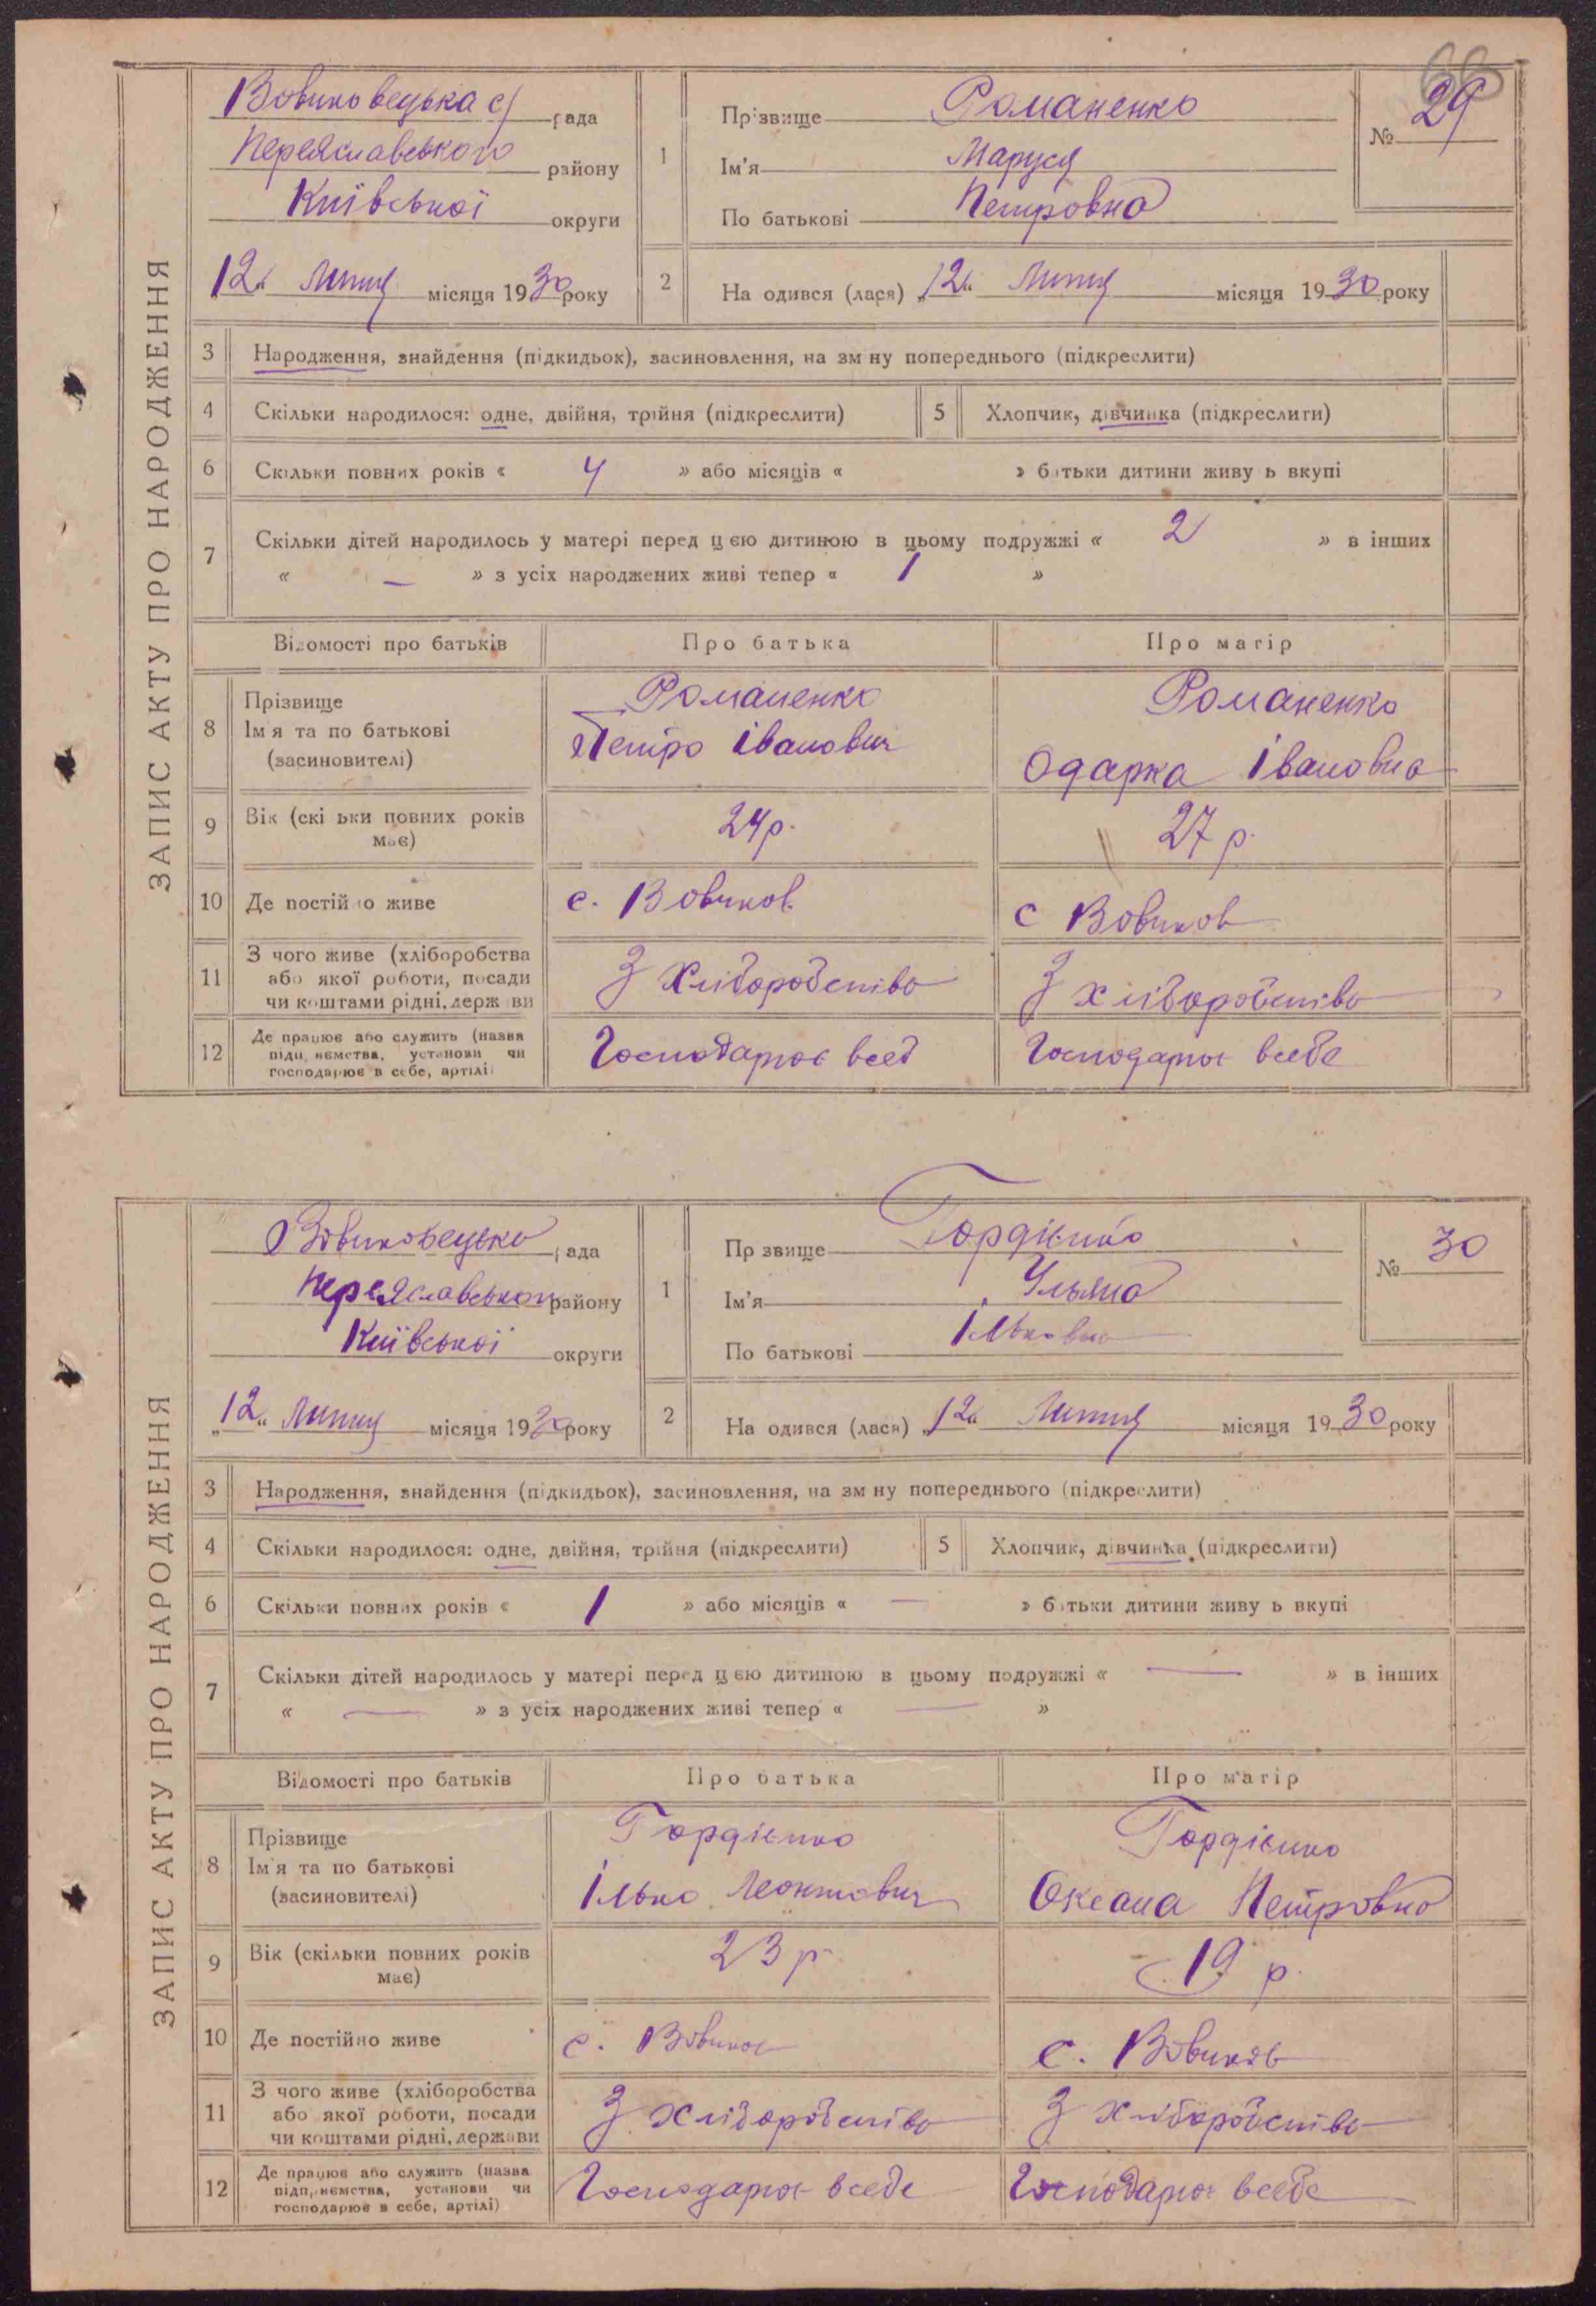 66
ЗАПИС АКТУ ПРО НАРОДЖЕННЯ
Вовчковецька с/рада
Переяславського району
Київської округи
"12" Липня місяця 1930 року
1
Прізвище Романенко
Ім'я Маруся
По батькові Петровна
№ 29
2
На одився (лася) "12" Липня місяця 1930 року
3 Народження, знайдення (підкидьок), засиновлення, на зм ну попереднього (підкреслити)
4 Скільки народилося: одне, двійня, трійня (підкреслити)
5 Хлопчик, дівчинка (підкреслити)
6 Скільки повних років « 4 » або місяців « » батьки дитини живу ь вкупі
7 Скільки дітей народилось у матері перед цією дитиною в цьому подружжі « 2 » в інших
« — » з усіх народжених живі тепер « 1 »
Відомості про батьків Про батька Про матір
8 Прізвище
Ім'я та по батькові
(засиновителі)
Романенко
Петро Іванович
Романенко
Одарка Івановна
9 Вік (скі ьки повних років
має)
24 р.
27 р.
10 Де постійно живе
с. Вовчков.
с Вовчков
11 З чого живе (хліборобства
або якої роботи, посади
чи коштами рідні, держави
З Хліборобство
З хліборобство
12 Де працює або служить (назва
підприємства, установи чи
господарює в себе, артілі
Господарює всеб
Господарює всебе
ЗАПИС АКТУ ПРО НАРОДЖЕННЯ
Вовчковецька рада
Переяславського району
Київської округи
"12" Липня місяця 1930 року
1
Пр звище Гордієнко
Ім'я Ульяна
По батькові Ільковна
№ 30
2
На одився (лася) "12" Липня місяця 1930 року
3 Народження, знайдення (підкидьок), засиновлення, на зм ну попереднього (підкреслити)
4 Скільки народилося: одне, двійня, трійня (підкреслити)
5 Хлопчик, дівчинка (підкреслити)
6 Скільки повних років « 1 » або місяців « — » батьки дитини живу ь вкупі
7 Скільки дітей народилось у матері перед цією дитиною в цьому подружжі « — » в інших
« — » з усіх народжених живі тепер « — »
Відомості про батьків Про батька Про матір
8 Прізвище
Ім'я та по батькові
(засиновителі)
Гордієнко
Ілько Леонтович
Гордієнко
Оксана Петровна
9 Вік (скільки повних років
має)
23 р
19 р.
10 Де постійно живе
с. Вовчков
с. Вовчков
11 З чого живе (хліборобства
або якої роботи, посади
чи коштами рідні, держави
З хліборобство
З хліборобство
12 Де працює або служить (назва
підприємства, установи чи
господарює в себе, артілі)
Господарює всебе
Господарює всебе